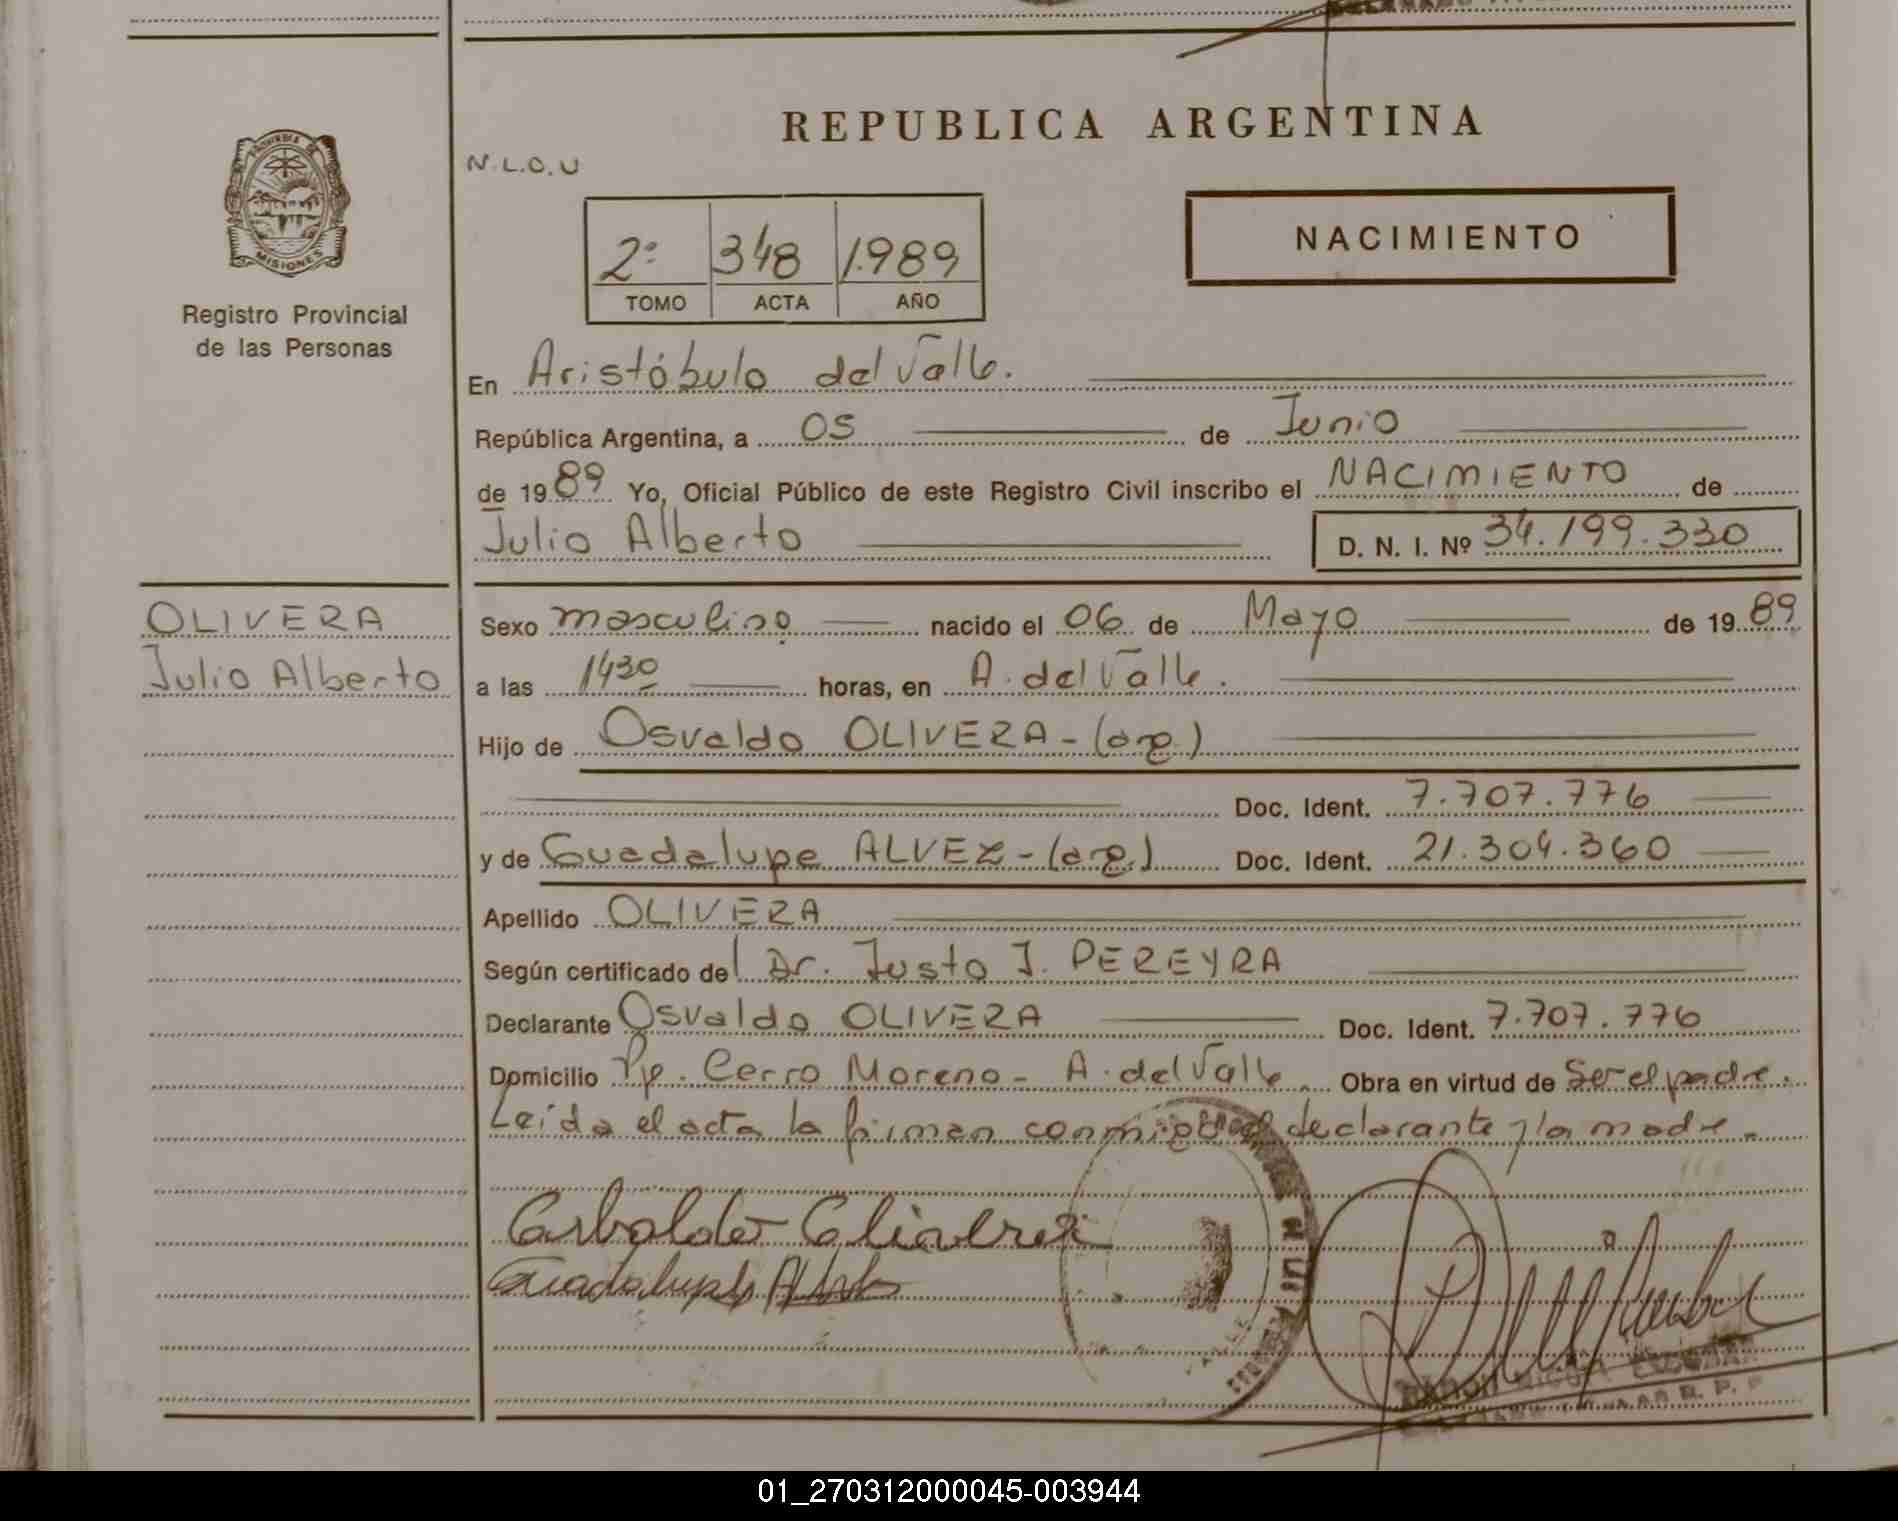 REPUBLICA ARGENTINA
N.L.O.U
PROVINCIA DE
MISIONES
Registro Provincial
de las Personas
2º 348 1.989
TOMO ACTA AÑO
NACIMIENTO
En Aristóbulo del Valle.
República Argentina, a 05 de Junio
de 1989 Yo, Oficial Público de este Registro Civil inscribo el NACIMIENTO de
Julio Alberto D. N. I. Nº 34.199.330
OLIVERA
Julio Alberto
Sexo masculino nacido el 06 de Mayo de 1989
a las 1430 horas, en A. del Valle.
Hijo de Osvaldo OLIVERA - (arg.)
Doc. Ident. 7.707.776
y de Guadalupe ALVEZ - (arg.) Doc. Ident. 21.304.360
Apellido OLIVERA
Según certificado del Dr. Justo J. PEREYRA
Declarante Osvaldo OLIVERA Doc. Ident. 7.707.776
Domicilio Pje. Cerro Moreno - A. del Valle. Obra en virtud de Ser el padre.
Leída el acta la firman conmigo el declarante y la madre.
RAMON MIGUEL ESCOBAR
R. P. P
01_270312000045-003944